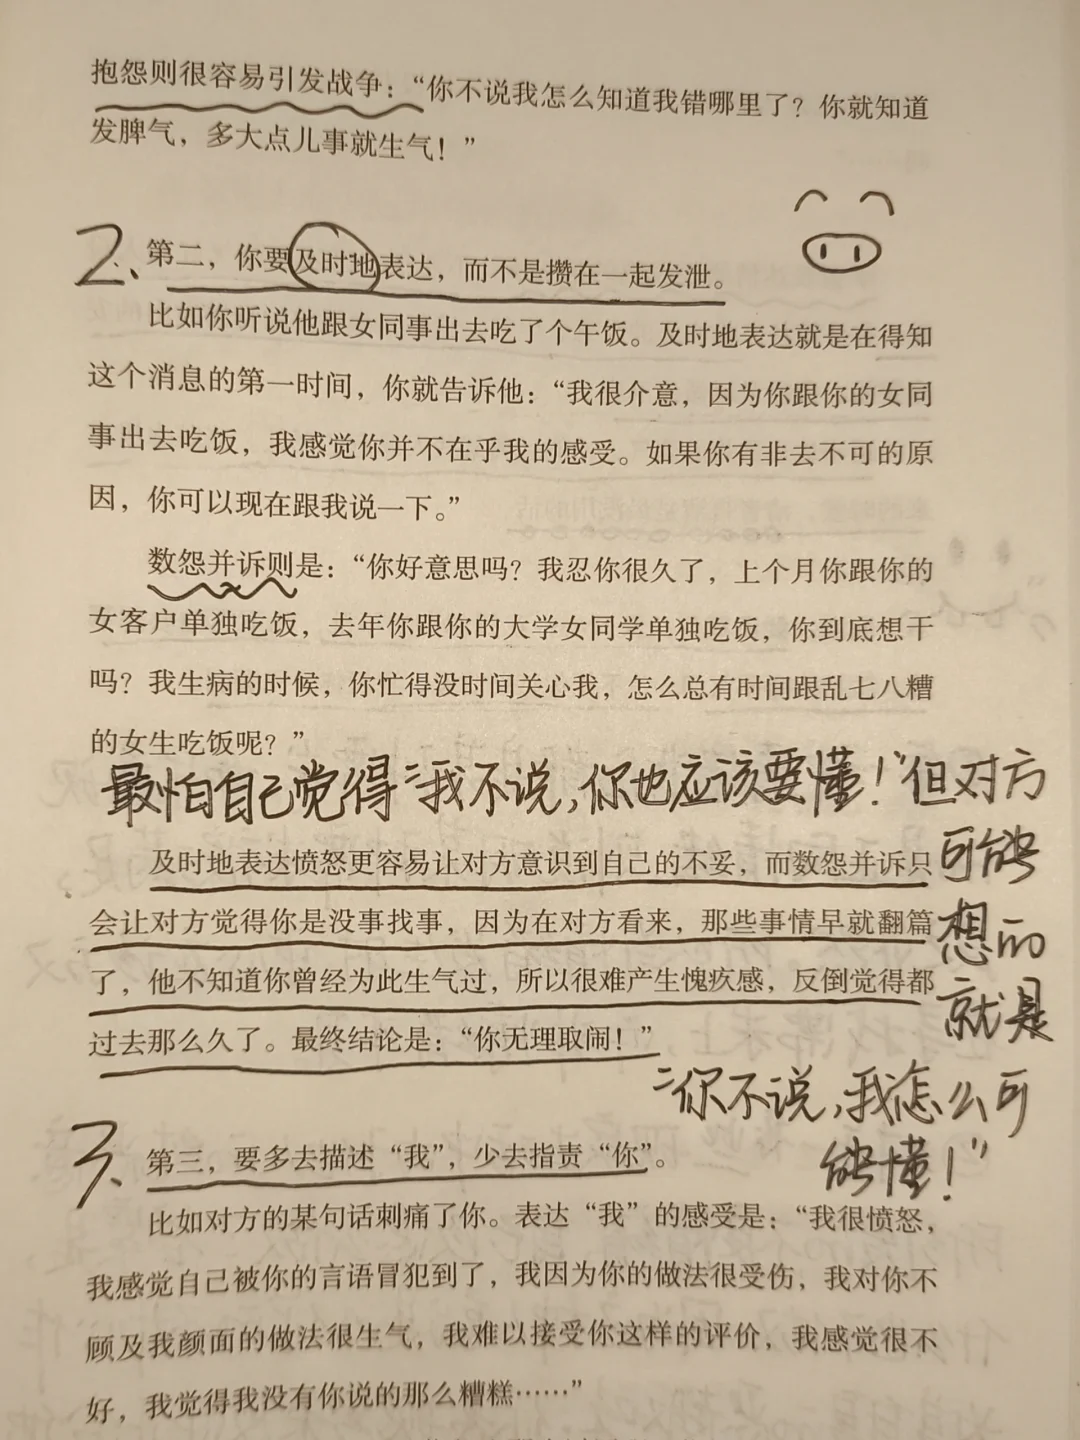 抱怨则很容易引发战争：“你不说我怎么知道我错哪里了？你就知道
发脾气，多大点儿事就生气！”
2、第二，你要及时地表达，而不是攒在一起发泄。
比如你听说他跟女同事出去吃了个午饭。及时地表达就是在得知
这个消息的第一时间，你就告诉他：“我很介意，因为你跟你的女同
事出去吃饭，我感觉你并不在乎我的感受。如果你有非去不可的原
因，你可以现在跟我说一下。”
数怨并诉则是：“你好意思吗？我忍你很久了，上个月你跟你的
女客户单独吃饭，去年你跟你的大学女同学单独吃饭，你到底想干
吗？我生病的时候，你忙得没时间关心我，怎么总有时间跟乱七八糟
的女生吃饭呢？”
最怕自己觉得“我不说，你也应该要懂！”但对方
可能
想的
就是
“你不说，我怎么可
能懂！”
及时地表达愤怒更容易让对方意识到自己的不妥，而数怨并诉只
会让对方觉得你是没事找事，因为在对方看来，那些事情早就翻篇
了，他不知道你曾经为此生气过，所以很难产生愧疚感，反倒觉得都
过去那么久了。最终结论是：“你无理取闹！”
3、第三，要多去描述“我”，少去指责“你”。
比如对方的某句话刺痛了你。表达“我”的感受是：“我很愤怒，
我感觉自己被你的言语冒犯到了，我因为你的做法很受伤，我对你不
顾及我颜面的做法很生气，我难以接受你这样的评价，我感觉很不
好，我觉得我没有你说的那么糟糕……”